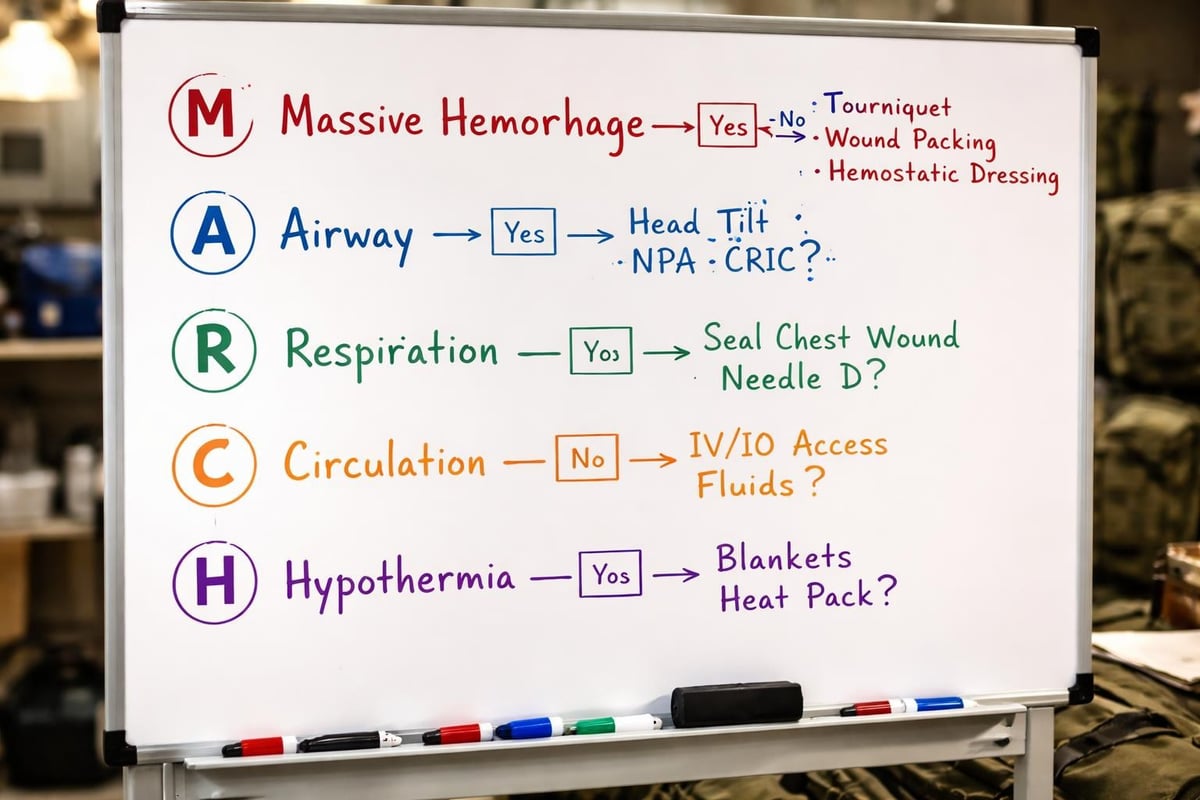 M Massive Hemorrhage → Yes - No → • Tourniquet
• Wound Packing
• Hemostatic Dressing
A Airway → Yes → Head Tilt
• NPA • CRIC?
R Respiration — Yos → Seal Chest Wound
Needle D?
C Circulation — No → IV/IO Access
Fluids?
H Hypothermia — Yos → Blankets
Heat Pack?